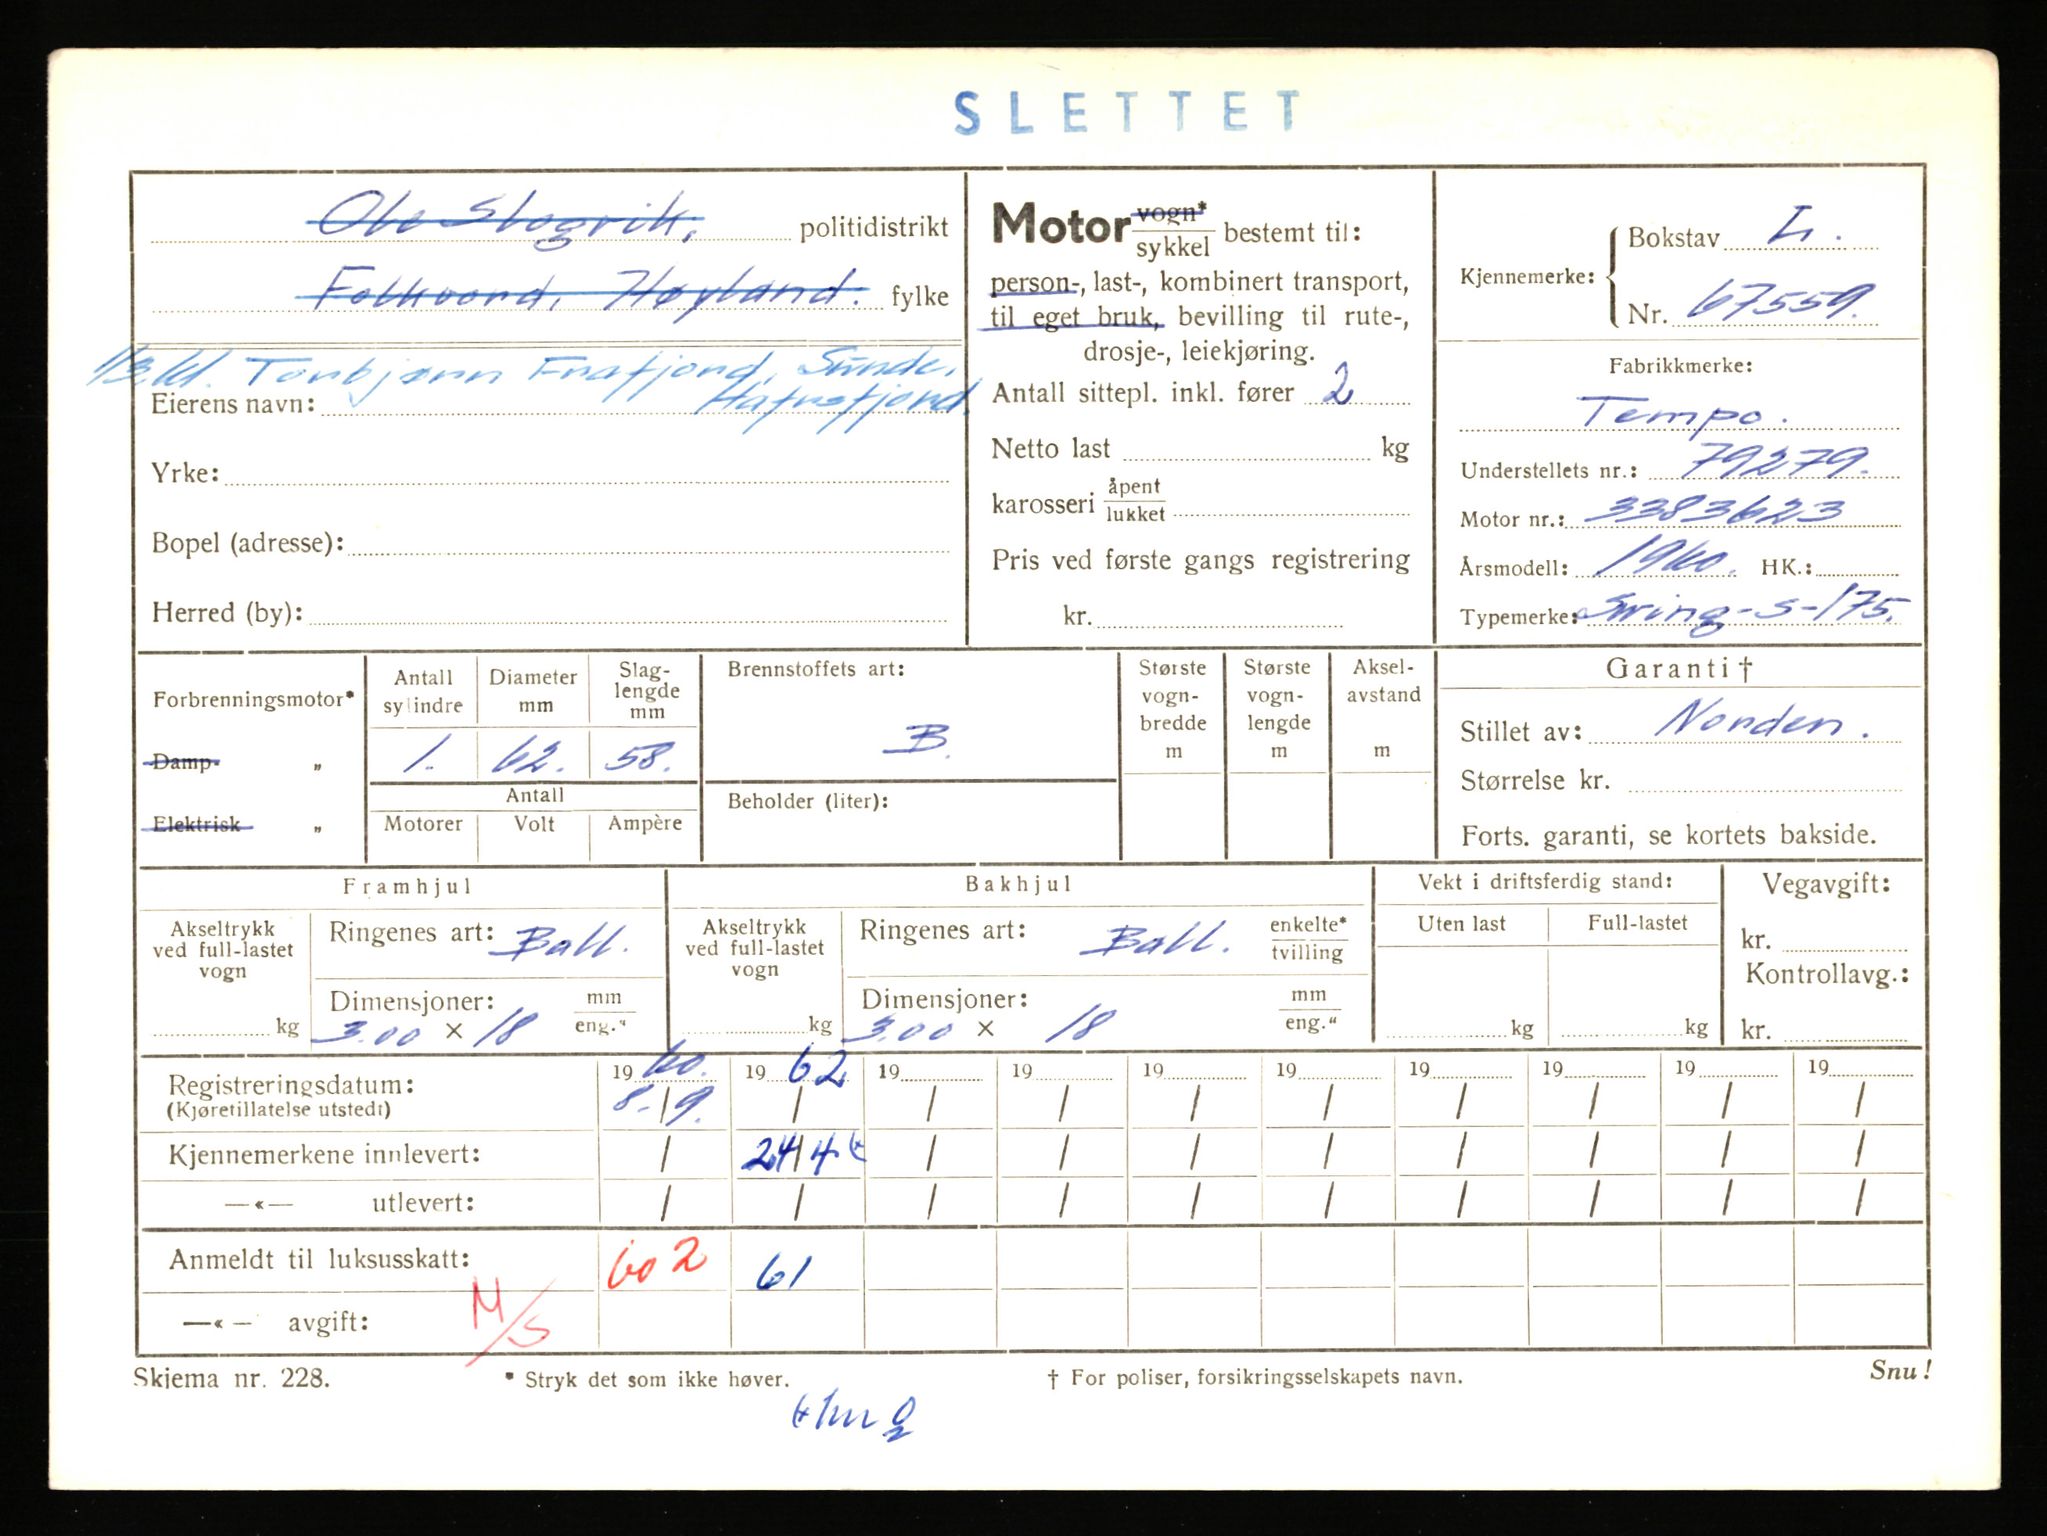 SLETTET
Ole Slogvik, politidistrikt
Folkvord, Høyland. fylke
1/3.61. Torbjørn Frafjord, Sunde,
Eierens navn: Hafrsfjord
Yrke:
Bopel (adresse):
Herred (by):
Motor vogn*
sykkel bestemt til:
person-, last-, kombinert transport,
til eget bruk, bevilling til rute-,
drosje-, leiekjøring.
Antall sittepl. inkl. fører 2
Netto last kg
karosseri åpent
lukket
Pris ved første gangs registrering
kr.
Kjennemerke: Bokstav L.
Nr. 67559.
Fabrikkmerke:
Tempo.
Understellets nr.: 79279.
Motor nr.: 3383623
Årsmodell: 1960. HK.:
Typemerke: Swing-S-175.
Forbrenningsmotor*
Damp- „
Elektrisk „
Antall sylindre
1.
Diameter mm
62.
Slag-
lengde
mm
58.
Antall
Motorer Volt Ampère
Brennstoffets art:
B
Beholder (liter):
Største
vogn-
bredde
m
Største
vogn-
lengde
m
Aksel-
avstand
m
Garanti †
Stillet av: Norden.
Størrelse kr.
Forts. garanti, se kortets bakside.
Framhjul
Akseltrykk
ved full-lastet
vogn
kg
Ringenes art: Ball.
Dimensjoner: mm
3.00 × 18 eng."
Bakhjul
Akseltrykk
ved full-lastet
vogn
kg
Ringenes art: Ball. enkelte*
tvilling
Dimensjoner: mm
3.00 × 18 eng."
Vekt i driftsferdig stand:
Uten last Full-lastet
kg kg
Vegavgift:
kr.
Kontrollavg.:
kr.
Registreringsdatum: 19 60. 19 62 19 19 19 19 19 19 19 19
(Kjøretillatelse utstedt) 8.-/9. / / / / / / / / /
Kjennemerkene innlevert: / 24/4 / / / / / / / /
—«— utlevert: / / / / / / / / / /
Anmeldt til luksusskatt: 60 2 61
—«— avgift: M/S
Skjema nr. 228. * Stryk det som ikke høver. † For poliser, forsikringsselskapets navn. Snu!